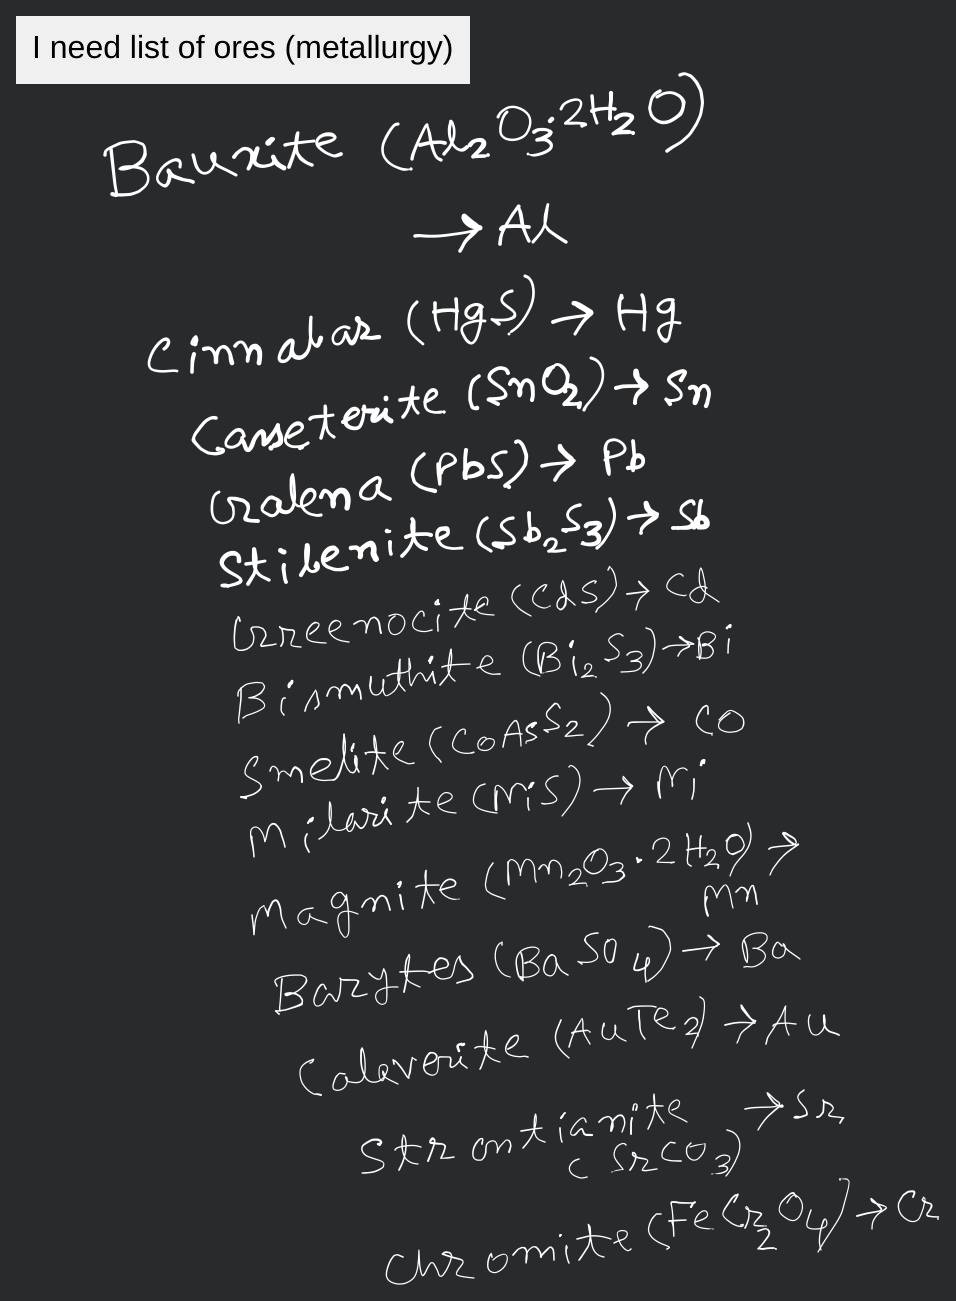 I need list of ores (metallurgy)
Bauxite (Al₂O₃·2H₂O)
→ Al
Cinnabar (HgS) → Hg
Casseterite (SnO₂) → Sn
Galena (PbS) → Pb
Stibenite (Sb₂S₃) → Sb
Greenocite (CdS) → Cd
Bismuthite (Bi₂S₃) → Bi
Smelite (CoAsS₂) → CO
Milarite (NiS) → Ni
Magnite (Mn₂O₃·2H₂O) →
Mn
Barytes (BaSO₄) → Ba
Calaverite (AuTe₂) → Au
Strontianite → Sr
(SrCO₃)
Chromite (FeCr₂O₄) → Cr